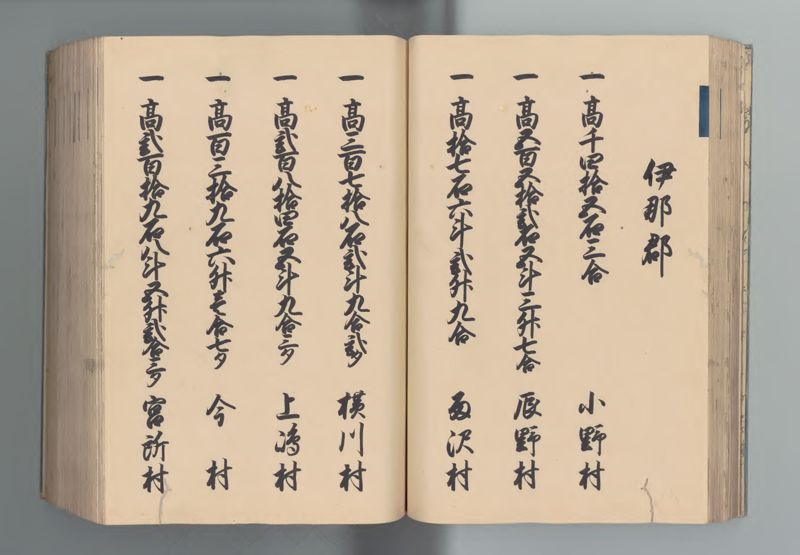 伊那郡
一 高千四拾五石三合 小野村
一 高五百五拾弐石五斗三升七合 辰野村
一 高拾七石六斗弐升九合 雨沢村
一 高三百七拾八石弐斗九合弐夕 横川村
一 高弐百八拾四石五斗九合三夕 上嶋村
一 高百三拾九石六升壱合七夕 今村
一 高弐百拾九石八斗五升弐合三夕 宮所村